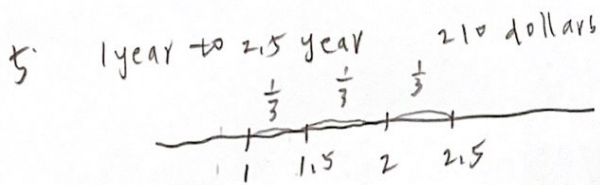 5. 1 year to 2.5 year 210 dollars
1/3 1/3 1/3
1 1.5 2 2.5